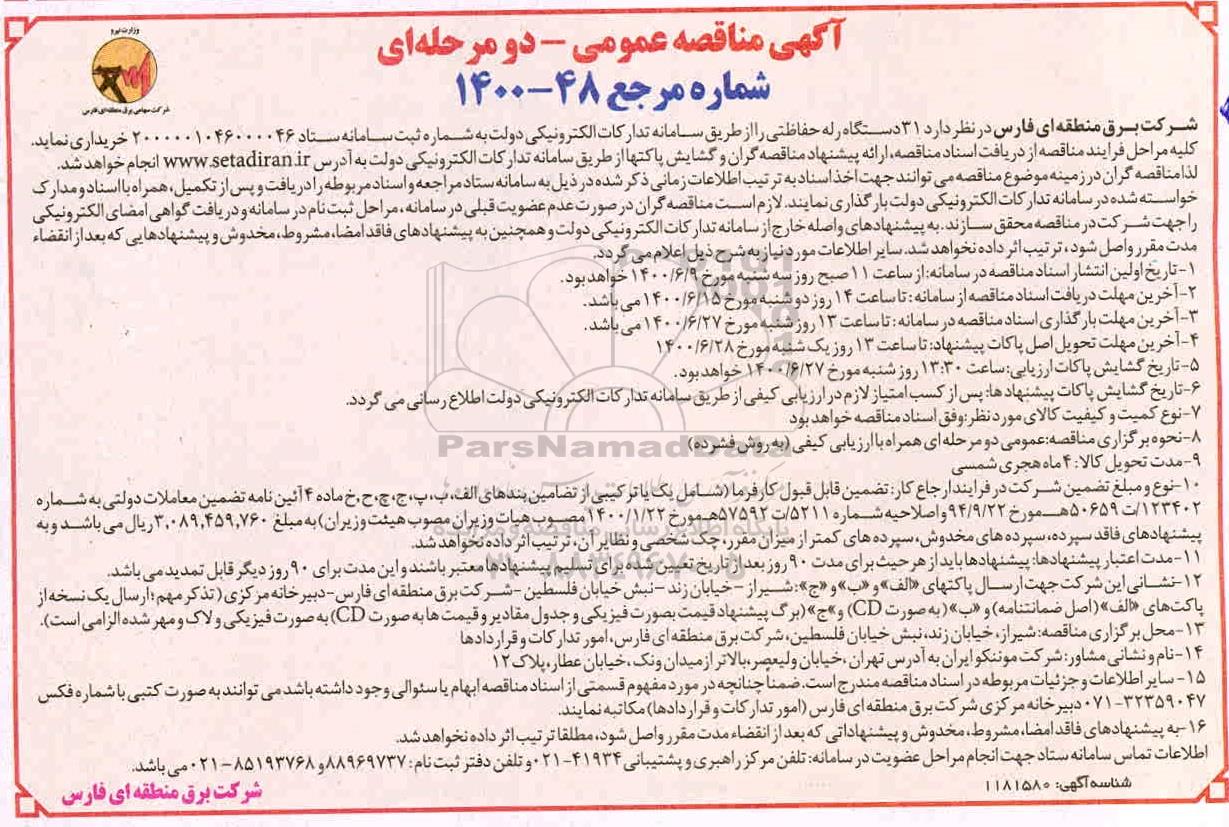 وزارت نیرو
شرکت سهامی برق منطقه‌ای فارس
آگهی مناقصه عمومی - دو مرحله‌ای
شماره مرجع ۴۸-۱۴۰۰
شرکت برق منطقه ای فارس در نظر دارد ۳۱ دستگاه رله حفاظتی را از طریق سامانه تدارکات الکترونیکی دولت به شماره ثبت سامانه ستاد ۲۰۰۰۰۰۱۰۴۶۰۰۰۰۴۶ خریداری نماید.
کلیه مراحل فرایند مناقصه از دریافت اسناد مناقصه، ارائه پیشنهاد مناقصه گران و گشایش پاکتها از طریق سامانه تدارکات الکترونیکی دولت به آدرس www.setadiran.ir انجام خواهد شد.
لذا مناقصه گران در زمینه موضوع مناقصه می توانند جهت اخذ اسناد به ترتیب اطلاعات زمانی ذکر شده در ذیل به سامانه ستاد مراجعه و اسناد مربوطه را دریافت و پس از تکمیل، همراه با اسناد و مدارک
خواسته شده در سامانه تدارکات الکترونیکی دولت بارگذاری نمایند. لازم است مناقصه گران در صورت عدم عضویت قبلی در سامانه، مراحل ثبت نام در سامانه و دریافت گواهی امضای الکترونیکی
را جهت شرکت در مناقصه محقق سازند. به پیشنهادهای واصله خارج از سامانه تدارکات الکترونیکی دولت و همچنین به پیشنهادهای فاقد امضا، مشروط، مخدوش و پیشنهادهایی که بعد از انقضاء
مدت مقرر واصل شود، ترتیب اثر داده نخواهد شد. سایر اطلاعات مورد نیاز به شرح ذیل اعلام می گردد.
۱-تاریخ اولین انتشار اسناد مناقصه در سامانه: از ساعت ۱۱ صبح روز سه شنبه مورخ ۱۴۰۰/۶/۹ خواهد بود.
۲-آخرین مهلت دریافت اسناد مناقصه از سامانه: تا ساعت ۱۴ روز دو شنبه مورخ ۱۴۰۰/۶/۱۵ می باشد.
۳-آخرین مهلت بارگذاری اسناد مناقصه در سامانه: تا ساعت ۱۳ روز شنبه مورخ ۱۴۰۰/۶/۲۷ می باشد.
۴-آخرین مهلت تحویل اصل پاکات پیشنهاد: تا ساعت ۱۳ روز یک شنبه مورخ ۱۴۰۰/۶/۲۸
۵-تاریخ گشایش پاکات ارزیابی: ساعت ۱۳:۳۰ روز شنبه مورخ ۱۴۰۰/۶/۲۷ خواهد بود.
۶-تاریخ گشایش پاکات پیشنهادها: پس از کسب امتیاز لازم در ارزیابی کیفی از طریق سامانه تدارکات الکترونیکی دولت اطلاع رسانی می گردد.
۷-نوع کمیت و کیفیت کالای مورد نظر: وفق اسناد مناقصه خواهد بود
۸-نحوه برگزاری مناقصه: عمومی دو مرحله ای همراه با ارزیابی کیفی (به روش فشرده)
ParsNamadData
۹-مدت تحویل کالا: ۴ ماه هجری شمسی
۱۰-نوع و مبلغ تضمین شرکت در فرایند ارجاع کار: تضمین قابل قبول کارفرما (شامل یک یا ترکیبی از تضامین بندهای الف، ب، پ، ج، چ، ح، خ ماده ۴ آئین نامه تضمین معاملات دولتی به شماره
۱۲۳۴۰۲/ت ۵۰۶۵۹ هـ مورخ ۹۴/۹/۲۲ و اصلاحیه شماره ۵۲۱۱/ت ۵۷۵۹۲ هـ مورخ ۱۴۰۰/۱/۲۲ مصوب هیات وزیران مصوب هیئت وزیران) به مبلغ ۳,۰۸۹,۴۵۹,۷۶۰ ریال می باشد و به
پیشنهادهای فاقد سپرده، سپرده های مخدوش، سپرده های کمتر از میزان مقرر، چک شخصی و نظایر آن، ترتیب اثر داده نخواهد شد.
۱۱-مدت اعتبار پیشنهادها: پیشنهادها باید از هر حیث برای مدت ۹۰ روز بعد از تاریخ تعیین شده برای تسلیم پیشنهادها معتبر باشند و این مدت برای ۹۰ روز دیگر قابل تمدید می باشد.
۱۲-نشانی این شرکت جهت ارسال پاکتهای «الف» و «ب» و «ج»: شیراز - خیابان زند - نبش خیابان فلسطین - شرکت برق منطقه ای فارس - دبیرخانه مرکزی (تذکر مهم: ارسال یک نسخه از
پاکت‌های «الف» (اصل ضمانتنامه) و «ب» (به صورت CD) و «ج» (برگ پیشنهاد قیمت بصورت فیزیکی و جدول مقادیر و قیمت ها به صورت CD) به صورت فیزیکی و لاک و مهر شده الزامی است).
۱۳-محل برگزاری مناقصه: شیراز، خیابان زند، نبش خیابان فلسطین، شرکت برق منطقه ای فارس، امور تدارکات و قراردادها
۱۴-نام و نشانی مشاور: شرکت موننکو ایران به آدرس تهران، خیابان ولیعصر، بالاتر از میدان ونک، خیابان عطار، پلاک ۱۲
۱۵- سایر اطلاعات و جزئیات مربوطه در اسناد مناقصه مندرج است. ضمنا چنانچه در مورد مفهوم قسمتی از اسناد مناقصه ابهام یا سئوالی وجود داشته باشد می توانند به صورت کتبی با شماره فکس
۰۷۱-۳۲۳۵۹۰۴۷ دبیرخانه مرکزی شرکت برق منطقه ای فارس (امور تدارکات و قراردادها) مکاتبه نمایند.
۱۶-به پیشنهادهای فاقد امضا، مشروط، مخدوش و پیشنهاداتی که بعد از انقضاء مدت مقرر واصل شود، مطلقا ترتیب اثر داده نخواهد شد.
اطلاعات تماس سامانه ستاد جهت انجام مراحل عضویت در سامانه: تلفن مرکز راهبری و پشتیبانی ۴۱۹۳۴-۰۲۱ و تلفن دفتر ثبت نام: ۸۸۹۶۹۷۳۷ و ۸۵۱۹۳۷۶۸-۰۲۱ می باشد.
شناسه آگهی: ۱۱۸۱۵۸۰
شرکت برق منطقه ای فارس